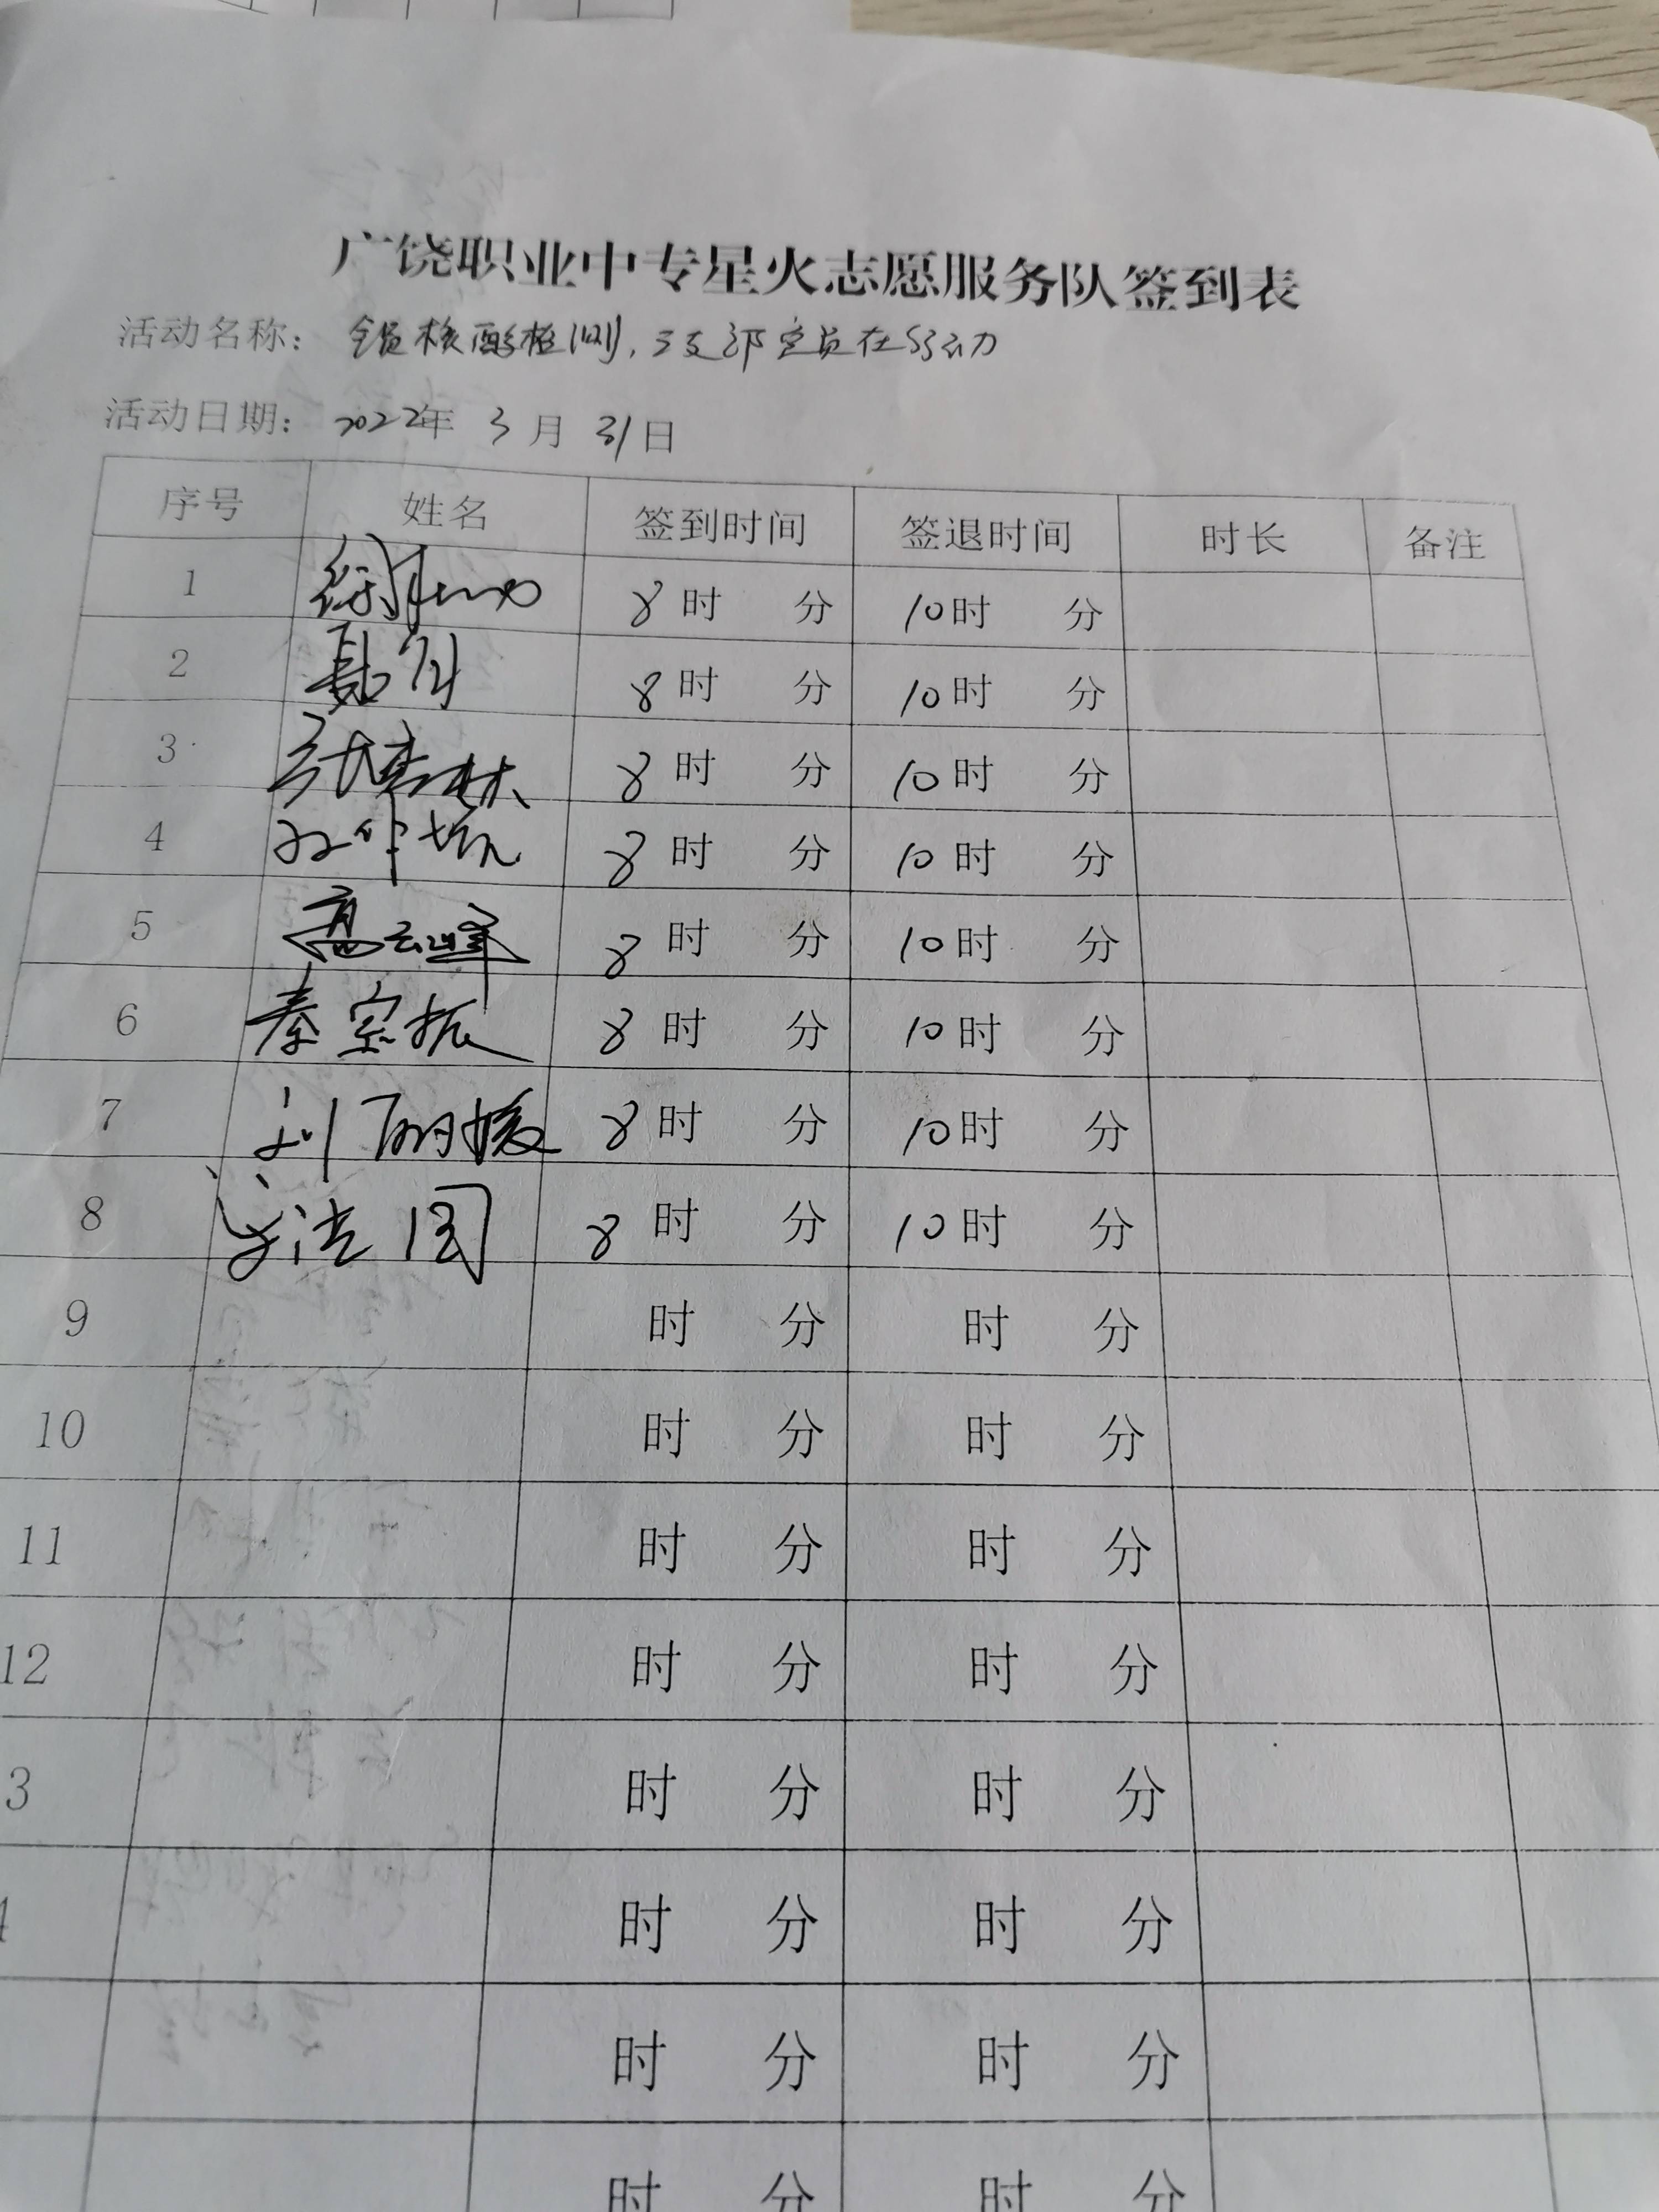 广饶职业中专星火志愿服务队签到表
活动名称：全员核酸检测，三支部党员在行动
活动日期：2022年 3月 31日
序号 姓名 签到时间 签退时间 时长 备注
1 8时 分 10时 分
2 8时 分 10时 分
3 8时 分 10时 分
4 8时 分 10时 分
5 8时 分 10时 分
6 秦宝振 8时 分 10时 分
7 刘丽媛 8时 分 10时 分
8 法国 8时 分 10时 分
9 时 分 时 分
10 时 分 时 分
11 时 分 时 分
12 时 分 时 分
3 时 分 时 分
时 分 时 分
时 分 时 分
时 分 时 分